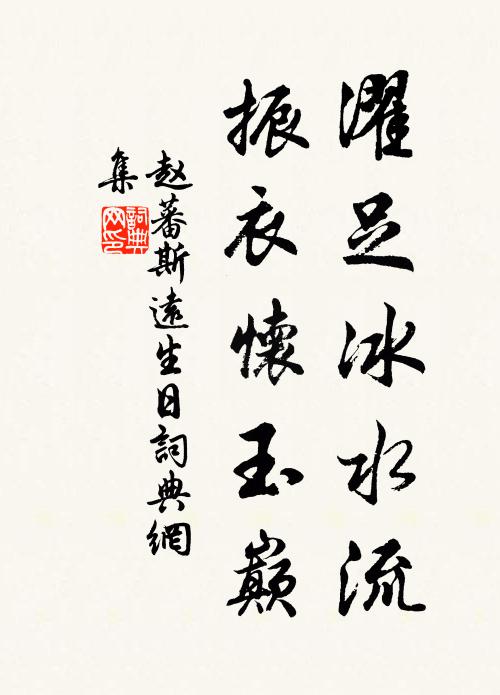 濯足冰水流
振衣懷玉巅
赵蕃斯遠生日詞典網
集
詞典網印